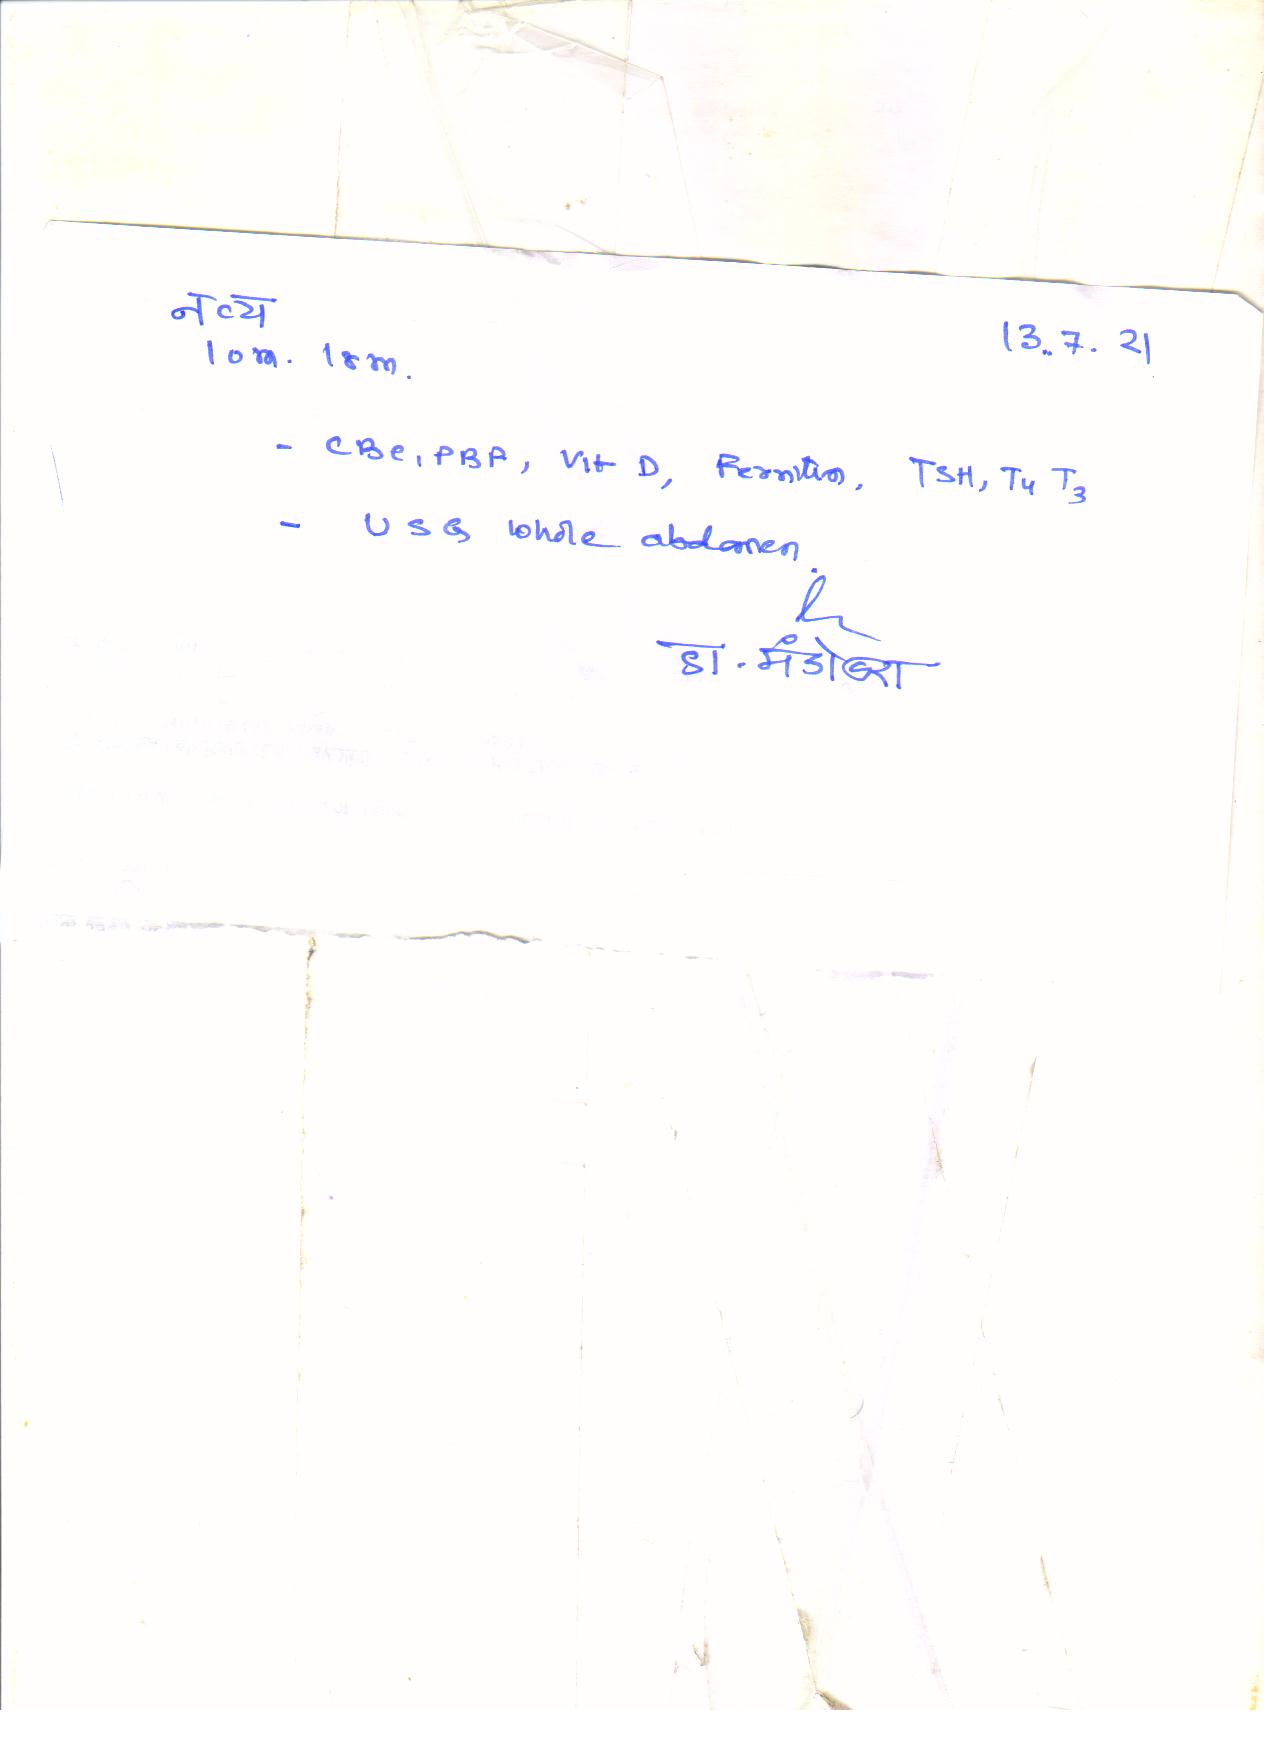 नव्य
13.7.21
10m. 18m.
- CBC, PBF, Vit D, Ferritin, TSH, T4 T3
- USG whole abdomen.
डा. मंडोवरा